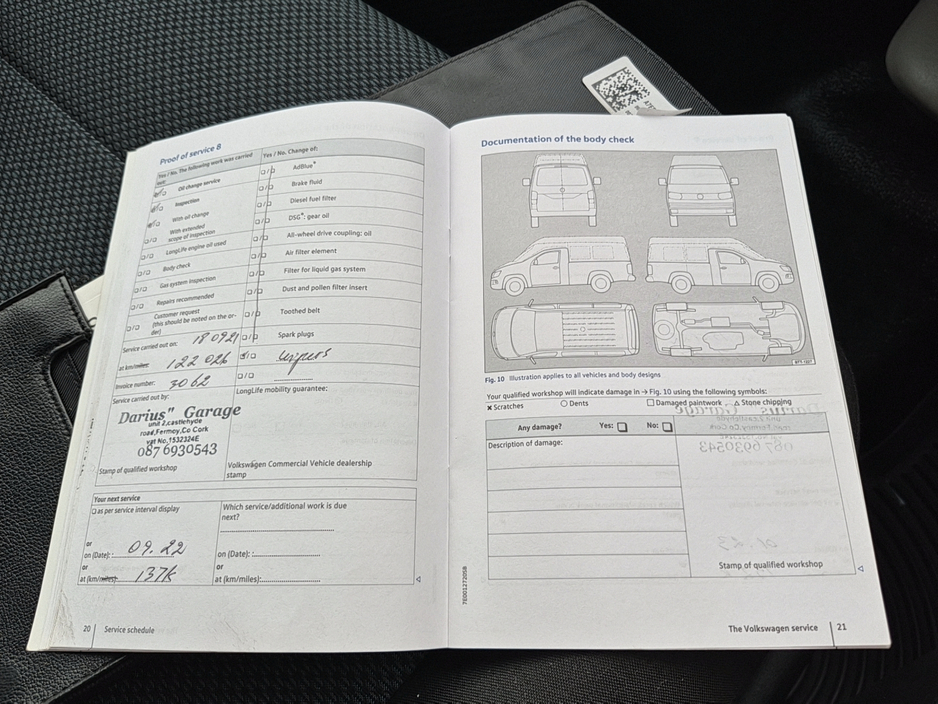 Proof of service 8
Yes / No. The following work was carried out:
Oil change service
Inspection
With oil change
With extended scope of inspection
LongLife engine oil used
Body check
Gas system inspection
Repairs recommended
Customer request
(this should be noted on the or-
der)
Service carried out on: 18 09 21
at km/miles: 122 026
Invoice number: 3062
Service carried out by:
Darius" Garage
unit 2, castlehyde
road, Fermoy, Co Cork
vat No. 1532324E
087 6930543
Stamp of qualified workshop
Yes / No. Change of:
AdBlue®
Brake fluid
Diesel fuel filter
DSG®: gear oil
All-wheel drive coupling: oil
Air filter element
Filter for liquid gas system
Dust and pollen filter insert
Toothed belt
Spark plugs
wipers
LongLife mobility guarantee:
Volkswagen Commercial Vehicle dealership
stamp
Your next service
as per service interval display
or
on (Date): 09. 22
or
at (km/miles): 137k
Which service/additional work is due
next?
on (Date):
or
at (km/miles):
20 | Service schedule
Documentation of the body check
Fig. 10 Illustration applies to all vehicles and body designs
Your qualified workshop will indicate damage in → Fig. 10 using the following symbols:
× Scratches ○ Dents □ Damaged paintwork △ Stone chipping
Any damage? Yes: No:
Description of damage:
Stamp of qualified workshop
7E0012720SB
The Volkswagen service | 21